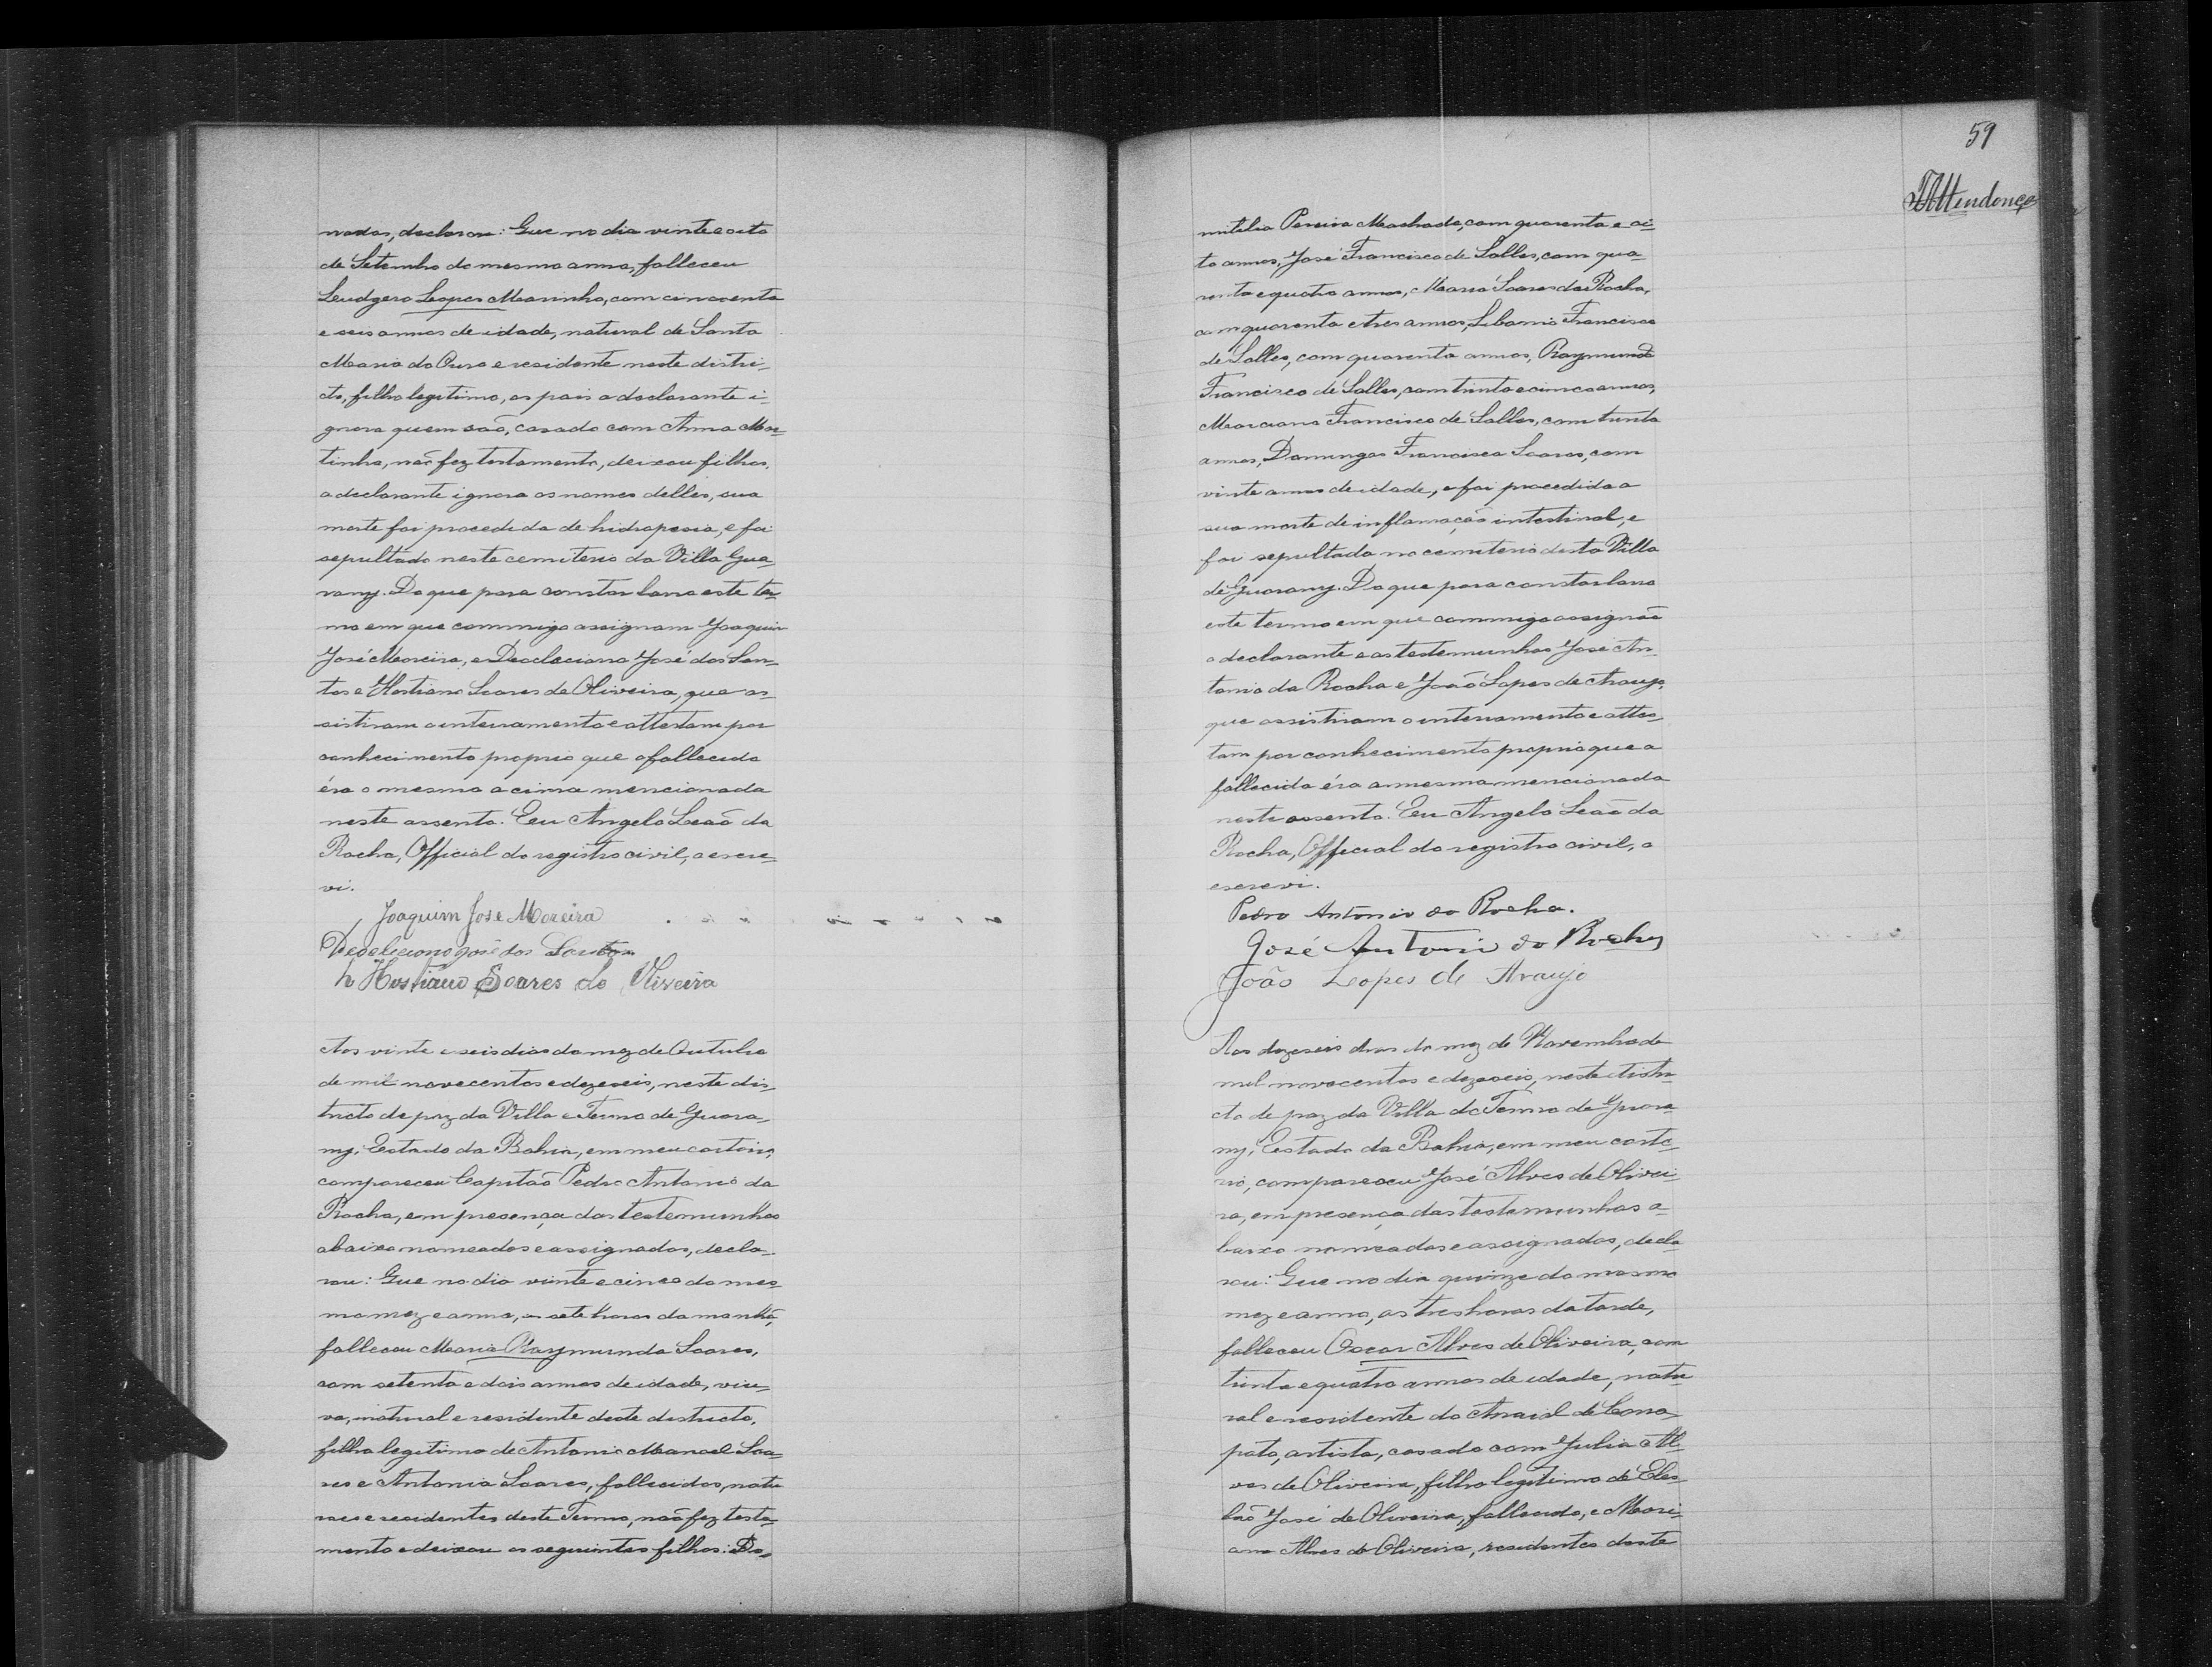 nadas, declarou: Que no dia vinte e oito
de Setembro do mesmo anno, falleceu
Leudgero Lopes Marinho, com cincoenta
e seis annos de idade, natural de Santa
Maria do Ouro e residente neste distri-
cto, filho legitimo, os pais o declarante i-
gnora quem são, casado com Anna Mar-
tinha, não fez testamento, deixou filhos,
o declarante ignora os nomes delles, sua
morte foi procedida de hidropesia, e foi
sepultado neste cemiterio da Villa Gua-
rany. Do que para constar lavro este ter-
mo em que commigo assignam Joaquim
José Moreira, e Deocleciano José dos San-
tos e Hostiano Soares de Oliveira, que as-
sistiram o interramento e attestam por
conhecimento proprio que o fallecido
éra o mesmo acima mencionado
neste assento. Eu Angelo Leão da
Rocha, Official do registro civil, o escre-
vi.
Joaquim José Moreira
Deocleciano José dos Santos
Hostiano Soares de Oliveira
Aos vinte e seis dias do mez de Outubro
de mil novecentos e dezeseis, neste dis-
tricto de paz da Villa e Termo de Guara-
ny, Estado da Bahia, em meu cartorio,
compareceu Capitão Pedro Antonio da
Rocha, em presença das testemunhas
abaixo nomeadas e assignadas, decla-
rou: Que no dia vinte e cinco do mes-
mo mez e anno, as sete horas da manhã,
falleceu Maria Raymunda Soares,
com setenta e dois annos de idade, viu-
va, natural e residente deste districto,
filha legitima de Antonio Manoel Soa-
res e Antonia Soares, fallecidos, natu
raes e residentes deste Termo, não fez testa-
mento e deixou os seguintes filhos: Do-
59
Mendonça
mitilia Pereira Machado, com quarenta e oi-
to annos, José Francisco de Salles, com qua-
renta e quatro annos, Maria Soares da Rocha,
com quarenta e tres annos, Libanio Francisco
de Salles, com quarenta annos, Raymundo
Francisco de Salles, com trinta e cinco annos,
Marciano Francisco de Salles, com trinta
annos, Domingas Francisca Soares, com
vinte annos de idade, e foi procedida a
sua morte de inflamação intestinal, e
foi sepultada no cemiterio desta Villa
de Guarany. Do que para constar lavro
este termo em que commigo assignão
o declarante e as testemunhas José An-
tonio da Rocha e João Lopes de Araujo,
que assistiram o interramento e attes-
tam por conhecimento proprio que a
fallecida éra a mesma mencionada
neste assento. Eu Angelo Leão da
Rocha, Official do registro civil, o
escrevi.
Pedro Antonio da Rocha.
José Antoni da Rocha
João Lopes de Araujo
Aos dezeseis dias do mez de Novembro de
mil novecentos e dezeseis, neste distri
cto de paz da Villa do Termo de Guara
ny, Estado da Bahia, em meu carto-
rio, compareceu José Alves de Olivei-
ra, em presença das testemunhas a-
baixo nomeadas e assignadas, decla
rou: Que no dia quinze do mesmo
mez e anno, as tres horas da tarde,
falleceu Oscar Alves de Oliveira, com
trinta e quatro annos de idade, natu
ral e residente do Arraial de Cara-
pato, artista, casado com Julia Al-
ves de Oliveira, filho legitimo de
José de Oliveira, fallecido, e Mari-
ana Alves de Oliveira, residentes deste